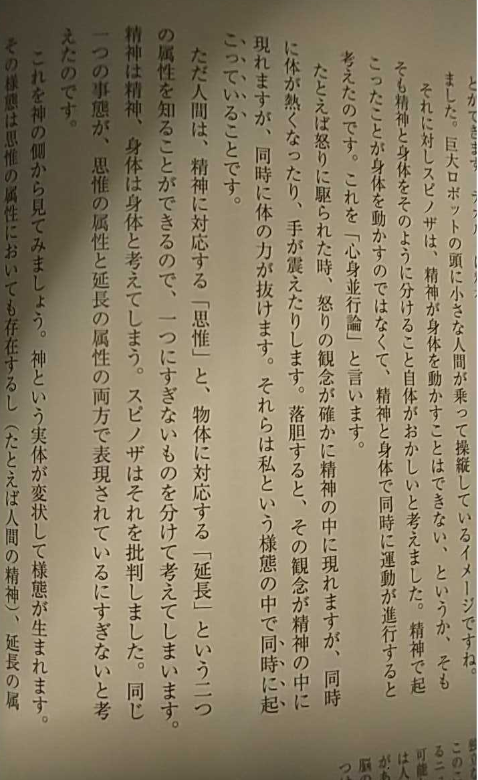 ました。巨大ロボットの頭に小さな人間が乗って操縦しているイメージですね。
それに対しスピノザは、精神が身体を動かすことはできない、というか、そも
そも精神と身体をそのように分けること自体がおかしいと考えました。精神で起
こったことが身体を動かすのではなくて、精神と身体で同時に運動が進行すると
考えたのです。これを「心身並行論」と言います。
たとえば怒りに駆られた時、怒りの観念が確かに精神の中に現れますが、同時
に体が熱くなったり、手が震えたりします。落胆すると、その観念が精神の中に
現れますが、同時に体の力が抜けます。それらは私という様態の中で同時に起
こっていることです。
ただ人間は、精神に対応する「思惟」と、物体に対応する「延長」という二つ
の属性を知ることができるので、一つにすぎないものを分けて考えてしまいます。
精神は精神、身体は身体と考えてしまう。スピノザはそれを批判しました。同じ
一つの事態が、思惟の属性と延長の属性の両方で表現されているにすぎないと考
えたのです。
これを神の側から見てみましょう。神という実体が変状して様態が生まれます。
その様態は思惟の属性においても存在するし（たとえば人間の精神）、延長の属
この
る二
可能
は人
があ
脳の
つ